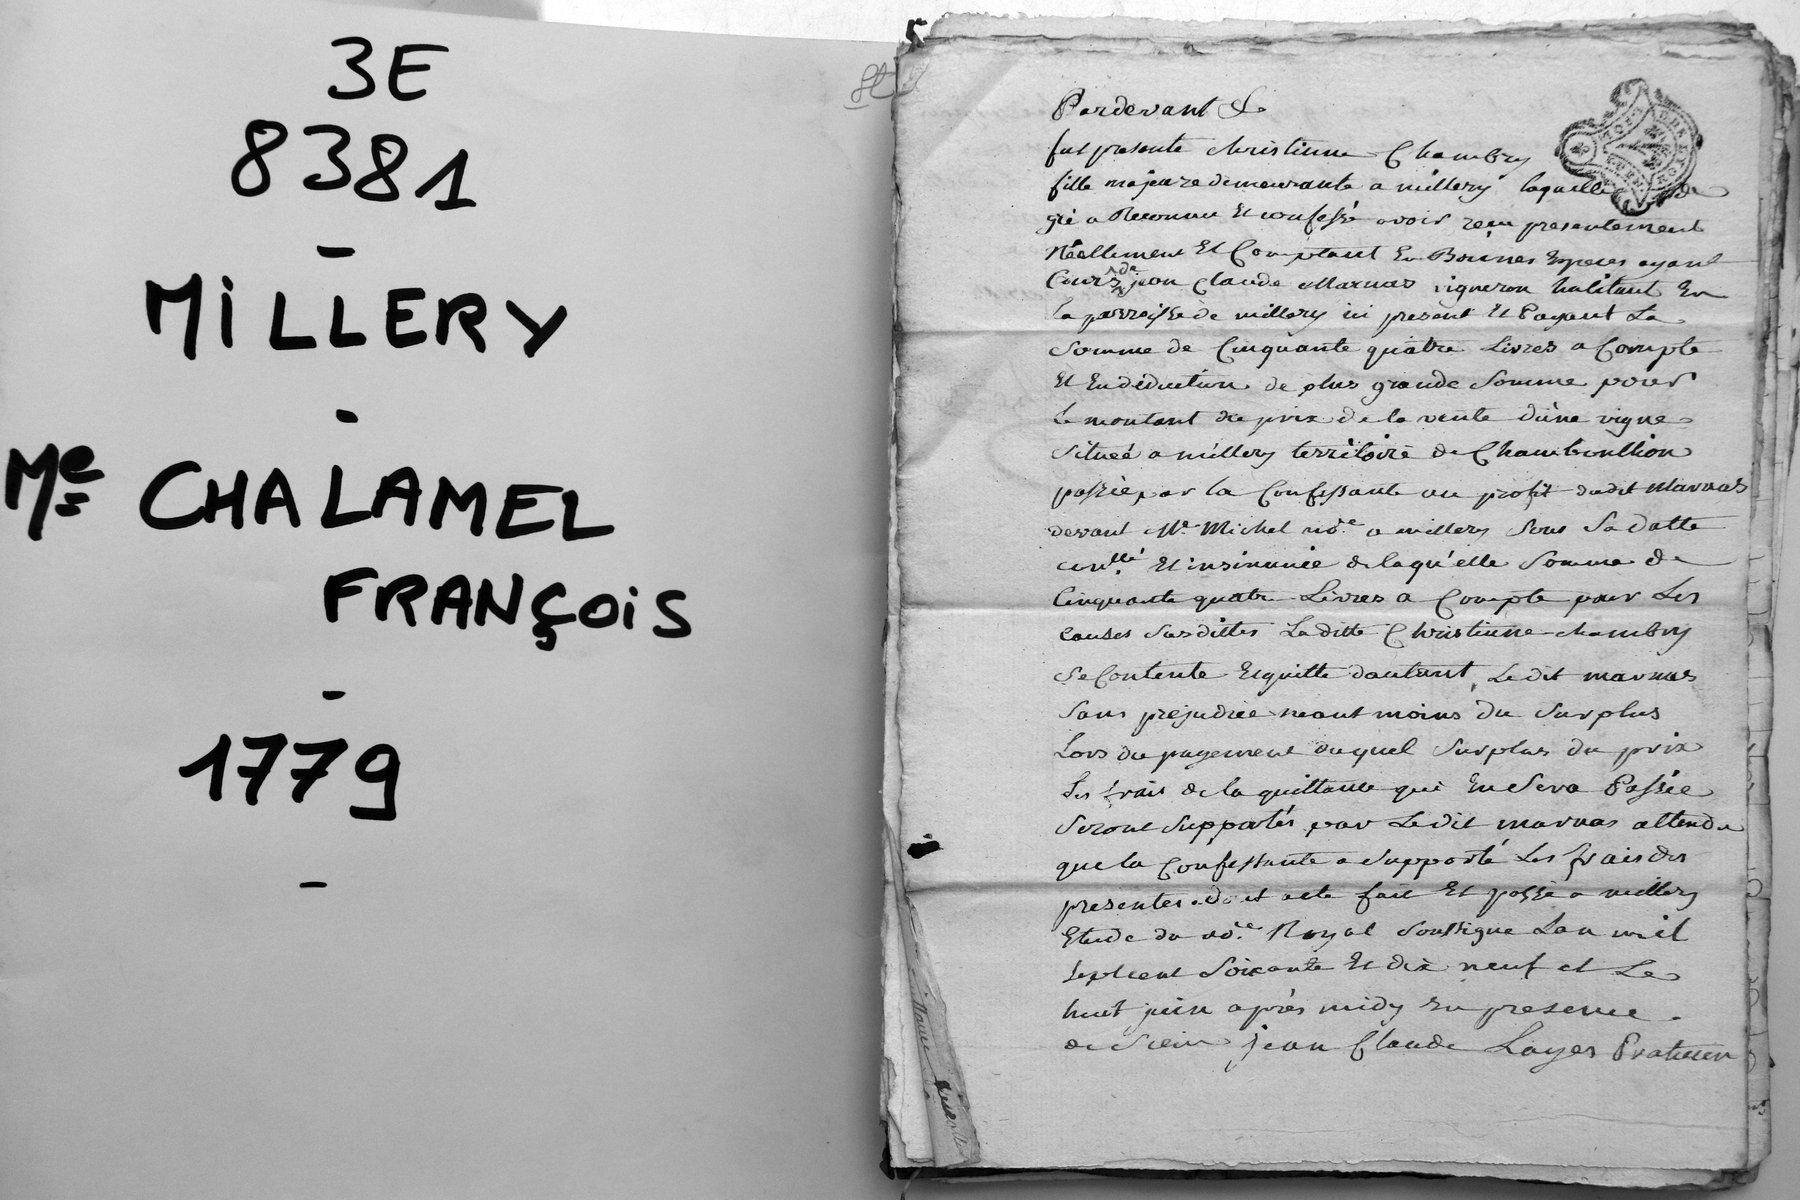 3E
8381
-
MILLERY
-
Me CHALAMEL
FRANÇOIS
-
1779
-
Pardevant &c
fut presente christinne Chambry
fille majeure demeurante a millery laquelle de
gré a Reconnu Et confessé avoir reçu presentement
Réellement Et Comptant En Bonnes Especes ayant
Cours de jean Claude Marnas vigneron habitant En
la parroisse de millery ici present Et Payant La
Somme de Cinquante quatre Livres a Compte
Et En deduction de plus grande Somme pour
Le montant du prix de la vente d'une vigne
Située a millery territoire de Chamboullion
passée par la Confessante au profit dudit Marnas
devant Me Michel nore a millery Sous Sa datte
conllé Et insinuée de laqu'elle Somme de
Cinquante quatre Livres a Compte pour Les
Causes Susdittes Laditte Christinne chambry
Se Contente Et quitte dautant Ledit marnas
Sans prejudice neant moins du Surplus
Lors du payement duquel Surplus du prix
Les frais de la quittance qui En Sera Passée
Seront Supportés par Ledit marnas attendu
que la Confessante a Supporté Les frais des
presentes. dont acte fait Et passé a millery
Etude du nore Royal Soussigné Lan mil
Septcent Soixante Et dix neuf et Le
huit juin après midy En presence
de Sieur jean Claude Layes Praticien